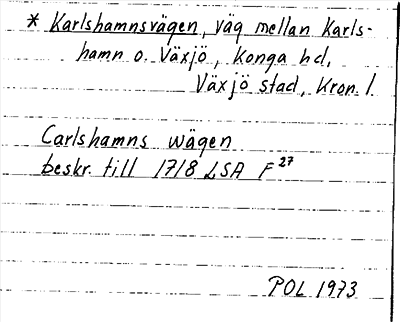 * Karlshamnsvägen, väg mellan Karls-
hamn o. Växjö, Konga hd,
Växjö stad, Kron. l.
Carlshamns wägen
beskr. till 1718 LSA F27
POL 1973